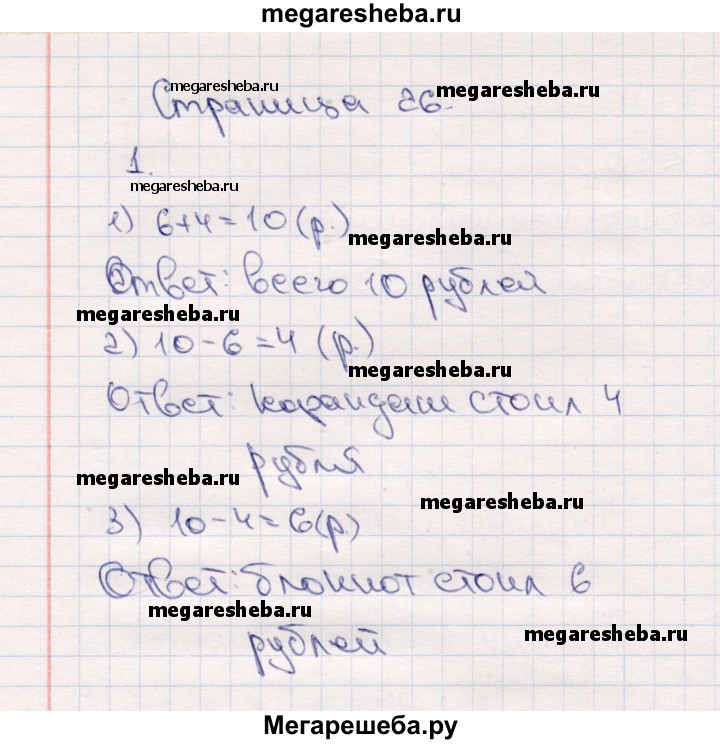 megaresheba.ru
megaresheba.ru
Страница 26.
megaresheba.ru
1.
megaresheba.ru
1) 6+4=10 (р.)
megaresheba.ru
Ответ: всего 10 рублей
megaresheba.ru
2) 10-6=4 (р.)
megaresheba.ru
Ответ: карандаш стоил 4
рубля
megaresheba.ru
megaresheba.ru
3) 10-4=6(р.)
Ответ: блокнот стоил 6
megaresheba.ru
рублей
megaresheba.ru
Мегарешеба.ру